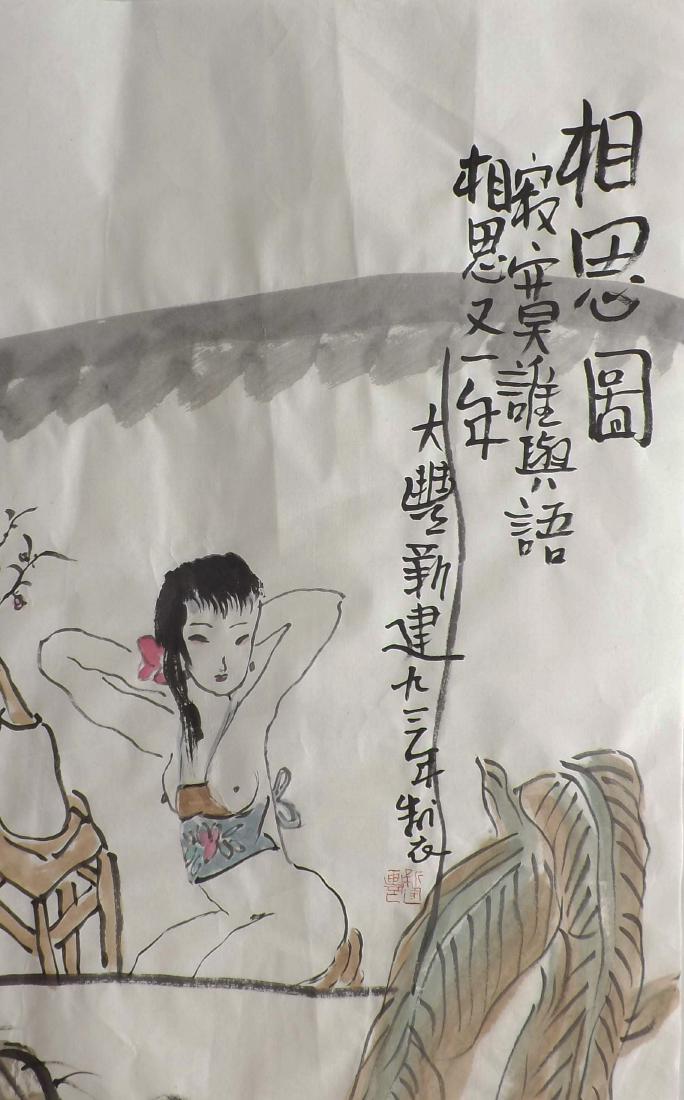 相思圖
寂寞誰與語
相思又一年
大豐新建九三年制